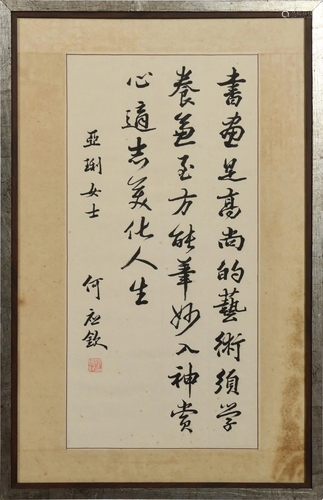 書畫是高尚的藝術須學
養兼至方能筆妙入神賞
心適志美化人生
亞琍女士
何應欽